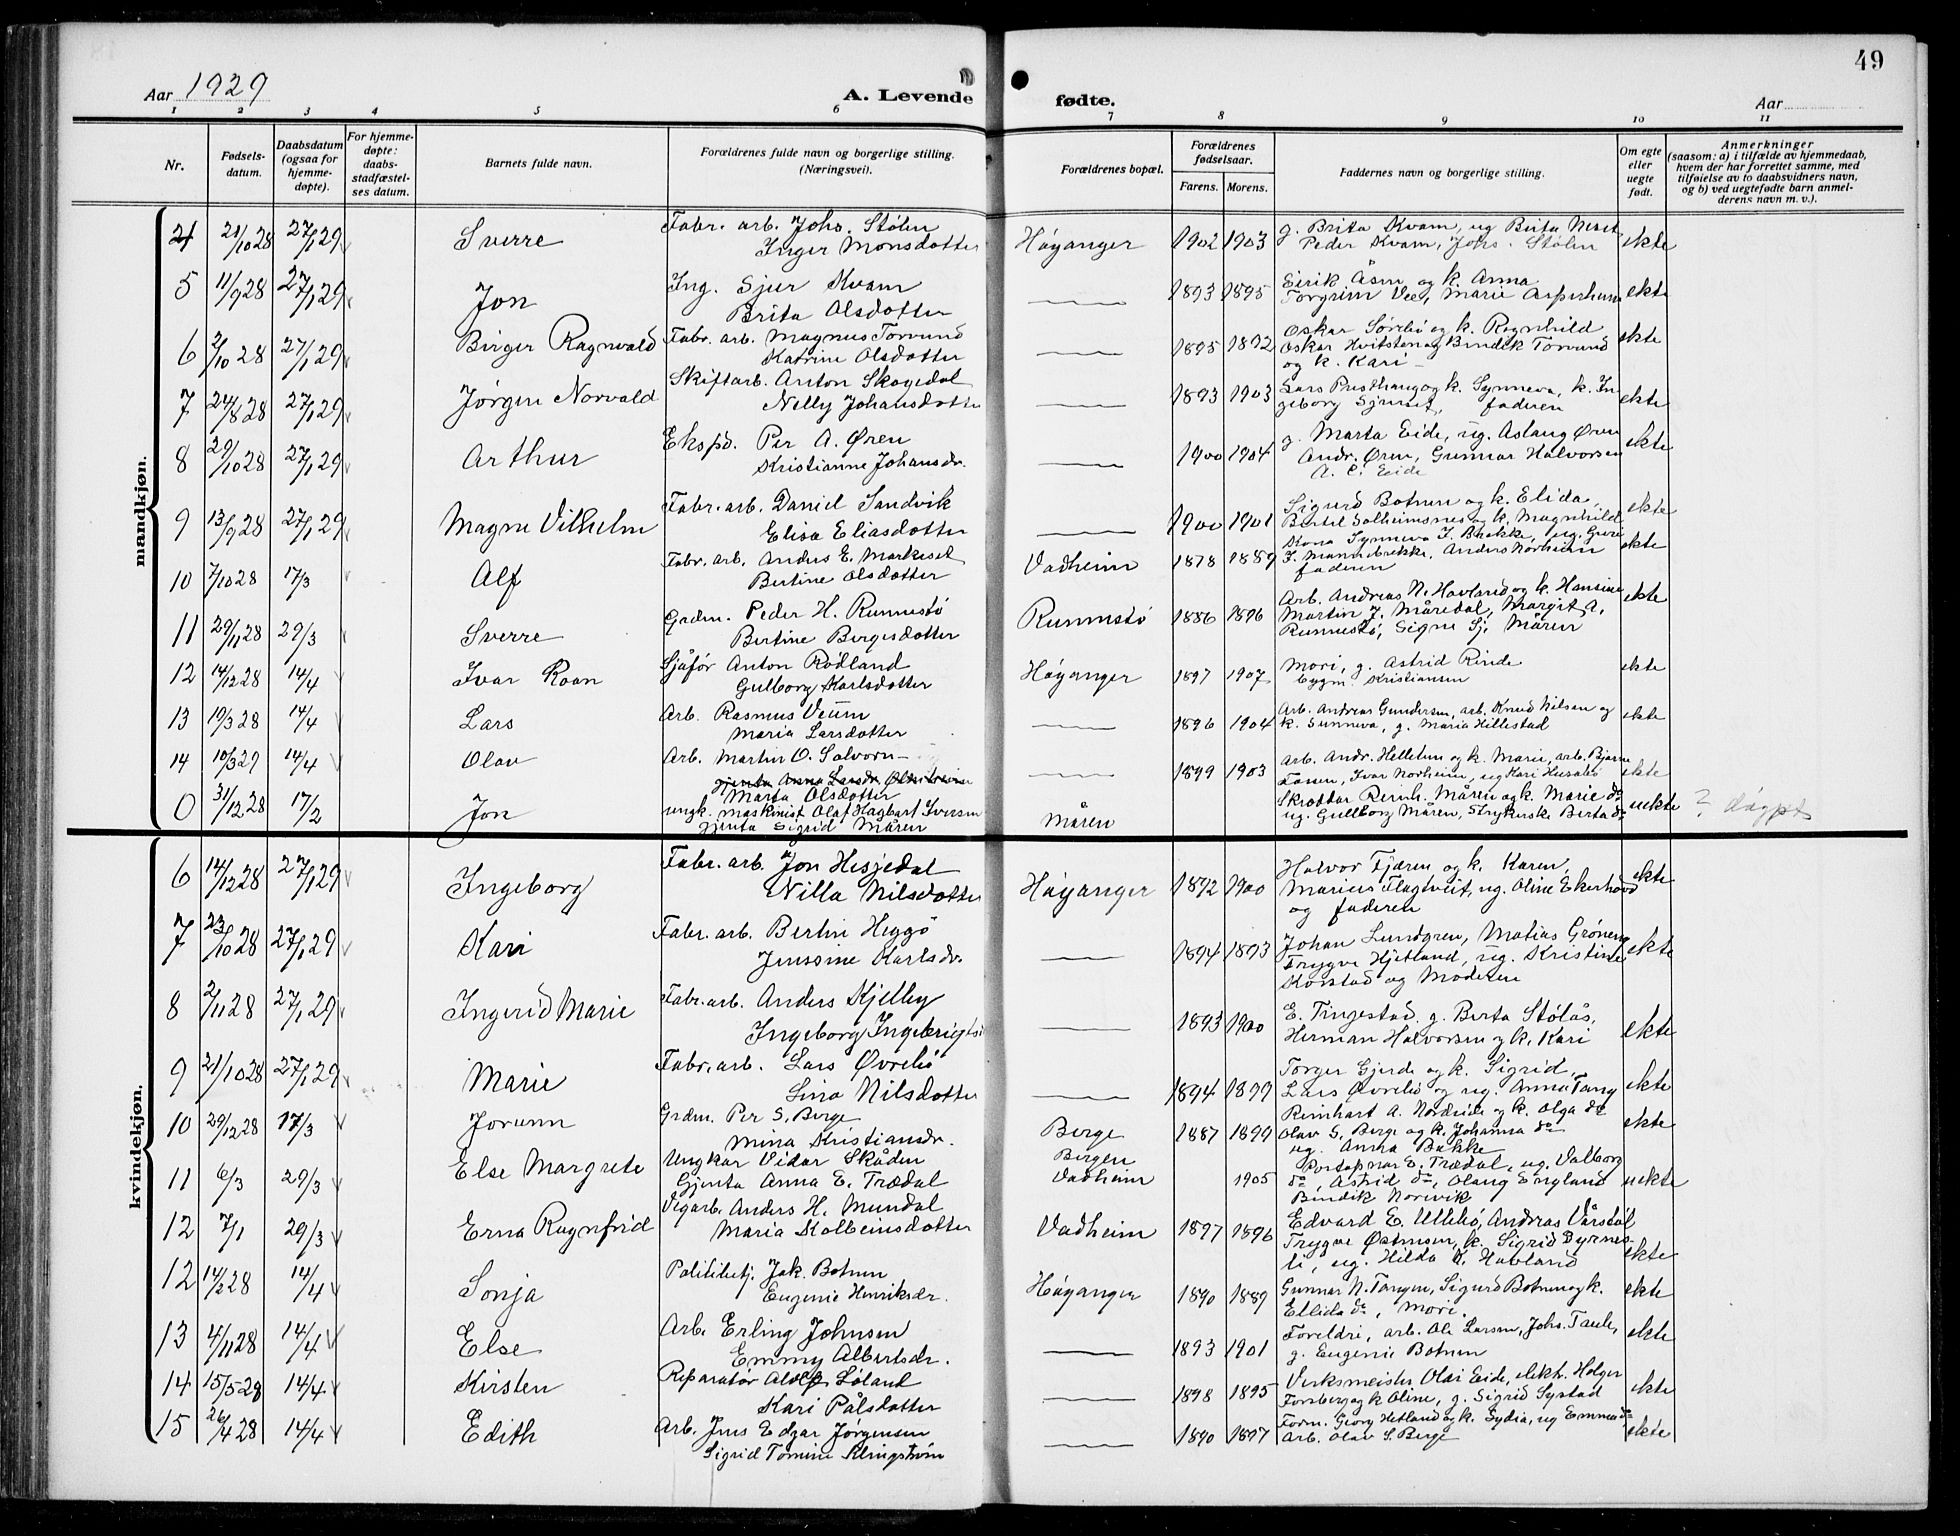 49
Aar 1929
A. Levende fødte.
Aar
1 2 3 4 5 6 7 8 9 10 11
Nr. Fødsels-datum. Daabsdatum (ogsaa for hjemme-døpte). For hjemme-døpte: daabs-stadfæstel-ses datum. Barnets fulde navn. Forældrenes fulde navn og borgerlige stilling. (Næringsvei). Forældrenes bopæl. Forældrenes fødselsaar. Farens. Morens. Faddernes navn og borgerlige stilling. Om egte eller uegte født. Anmerkninger (saasom: a) i tilfælde av hjemmedaab, hvem der har forrettet samme, med tilføielse av to daabsvidners navn, og b) ved uegtefødte barn anmel-derens navn m. v.).
mandkjøn.
4 21/10 28 27/1 29 Sverre Fabr. arb. Johs. Stølen Høyanger 1902 1903 g. Brita Kvam, ug Brita Neset ekte
Inger Monsdotter Peder Kvam, Johs. Stølen
5 11/9 28 27/1 29 Jon Ing. Sjur Kvam 1893 1895 Eirik Åsen og k. Anna ekte
Brita Olsdotter Torgrim Vee, Marie Asperheim
6 2/10 28 27/1 29 Birger Ragnvald Fabr. arb. Magnus Torvund 1895 1892 Oskar Sørebø og k. Ragnhild ekte
Katrine Olsdotter Oskar Hvitsten og Bendik Torvund
og k. Kari
7 24/8 28 27/1 29 Jørgen Norvald Skiftarb. Anton Skagedal 1893 1903 Lars Presthaug og k. Synneva, k. In-
Nelly Johansdotter geborg Sjurset, faderen ekte
8 29/10 28 27/1 29 Arthur Ekspd. Per A. Øren 1900 1904 g. Marta Eide, ug. Aslaug Øren ekte
Kristianne Johansdr. Andr. Øren, Gunnar Halvorsen
A. C. Eide
9 13/9 28 27/1 29 Magne Vilhelm Fabr. arb. Daniel Sandvik 1900 1901 Sigurd Botnen og k. Elida, ekte
Elisa Eliasdotter Bertel Solheimsnes og k. Magnhild
10 7/10 28 17/3 Alf Fabr. arb. Anders E. Markeset Vadheim 1878 1889 Kona Synneva I. Bakke, ug. Guri ekte
Bertine Olsdotter I. Mannsbrekke, Anders Norheim
faderen
11 29/11 28 29/3 Sverre Grdm. Peder H. Runnestø Runnestø 1886 1896 Arb. Andreas N. Havland og k. Hansine ekte
Bertine Bergesdotter Martin J. Måredal, Margit A.
Runnestø, Signe Sj. Måren
12 14/12 28 14/4 Ivar Roan Sjåfør Anton Rødland Høyanger 1897 1907 Mori, g. Astrid Rinde ekte
Gulborg Karlsdotter bygm. Kristiansen
13 19/3 28 14/4 Lars Arb. Rasmus Veum 1896 1904 Arb. Andreas Gundersen, arb. Knud Nilsen og ekte
Maria Larsdotter k. Sunneva, g. Maria Hillestad
14 10/3 29 14/4 Olav Arb. Martin O. Solvorn 1899 1903 arb. Andr. Helletun og k. Marie, arb. Bjarne ekte
Marta Olsdotter Ivar Norheim, ug Kari
0 31/12 28 17/2 Jon ungk. maskinist Olaf Hagbart Iversen Måren Skreddar Bernh. Måren og k. Marie do uekte ? døypt
gjenta Sigrid Måren ug. Gullborg Måren, Strykerske Berta do
kvindekjøn.
6 14/12 28 27/1 29 Ingeborg Fabr. arb. Jon Hesjedal Høyanger 1892 1900 Halvor Fjæren og k. Karen, ekte
Nilla Nilsdotter Marius Flagtveit, ug. Oline Ekerhovd
og faderen
7 23/10 28 27/1 29 Kari Fabr. arb. Bertin Heggø 1894 1893 Johan Lundgren, Matias Grøneng ekte
Jenssine Karlsdr. Trygve Hjetland, ug. Kristine
Korstad og Moderen
8 2/11 28 27/1 29 Ingerid Marie Fabr. arb. Anders Kjelby 1893 1900 E. Tingestad g. Berta Stølås, ekte
Ingeborg Ingebrigtsd Herman Halvorsen og k. Kari
9 21/10 28 27/1 29 Marie Fabr. arb. Lars Øvrebø 1894 1899 Torger Gjerde og k. Sigrid, ekte
Lina Nilsdotter Lars Øvrebø og ug. Anna Tang
10 29/12 28 17/3 Jorunn Grdm. Per S. Berge Berge 1887 1899 Reinhart A. Nordeide og k. Olga do ekte
Mina Kristiansdr. Olav S. Berge og k. Johanna do
ug. Anna Bakke
11 6/3 29/3 Else Margrete Ungkar Vidar Skåden Bergen Postopnar E. Trædal, ug. Valborg
Gjenta Anna E. Trædal Vadheim 1905 do, Astrid do, Olaug England uekte
Bendik Norevik
12 7/1 29/3 Erna Ragnfrid Vegarb. Anders H. Mundal Vadheim 1897 1896 Edvard E. Ullebø, Andreas Vårstøl
Maria Kolbeinsdotter Trygve Østensen, k. Sigrid Byrnes-
li, ug. Hilda K. Havland ekte
12 14/2 28 14/4 Sonja Politibetj. Jak. Botnen Høyanger 1890 1889 Gunnar N. Tangen, Sigurd Botnen og k. ekte
Eugenie Henriksdr. Ellida do, mori.
13 4/11 28 14/4 Else Arb. Erling Johnsen 1893 1901 Foreldri, arb. Ole Larsen, Johs. Taule, ekte
Emmy Albertsdr. g. Eugenie Botnen
14 15/5 28 14/4 Kirsten Reparatør Adolf Løland 1898 1895 Verksmeister Olai Eide, elekt. Holger ekte
Kari Pålsdotter Forsberg og k Oline, g. Sigrid Systad
15 26/4 28 14/4 Edith Arb. Jens Edgar Jørgensen 1890 1897 Form. Georg Hetland og k. Lydia, ug Emma do ekte
Sigrid Tomine Klingstrøm Arb. Olav S. Berge